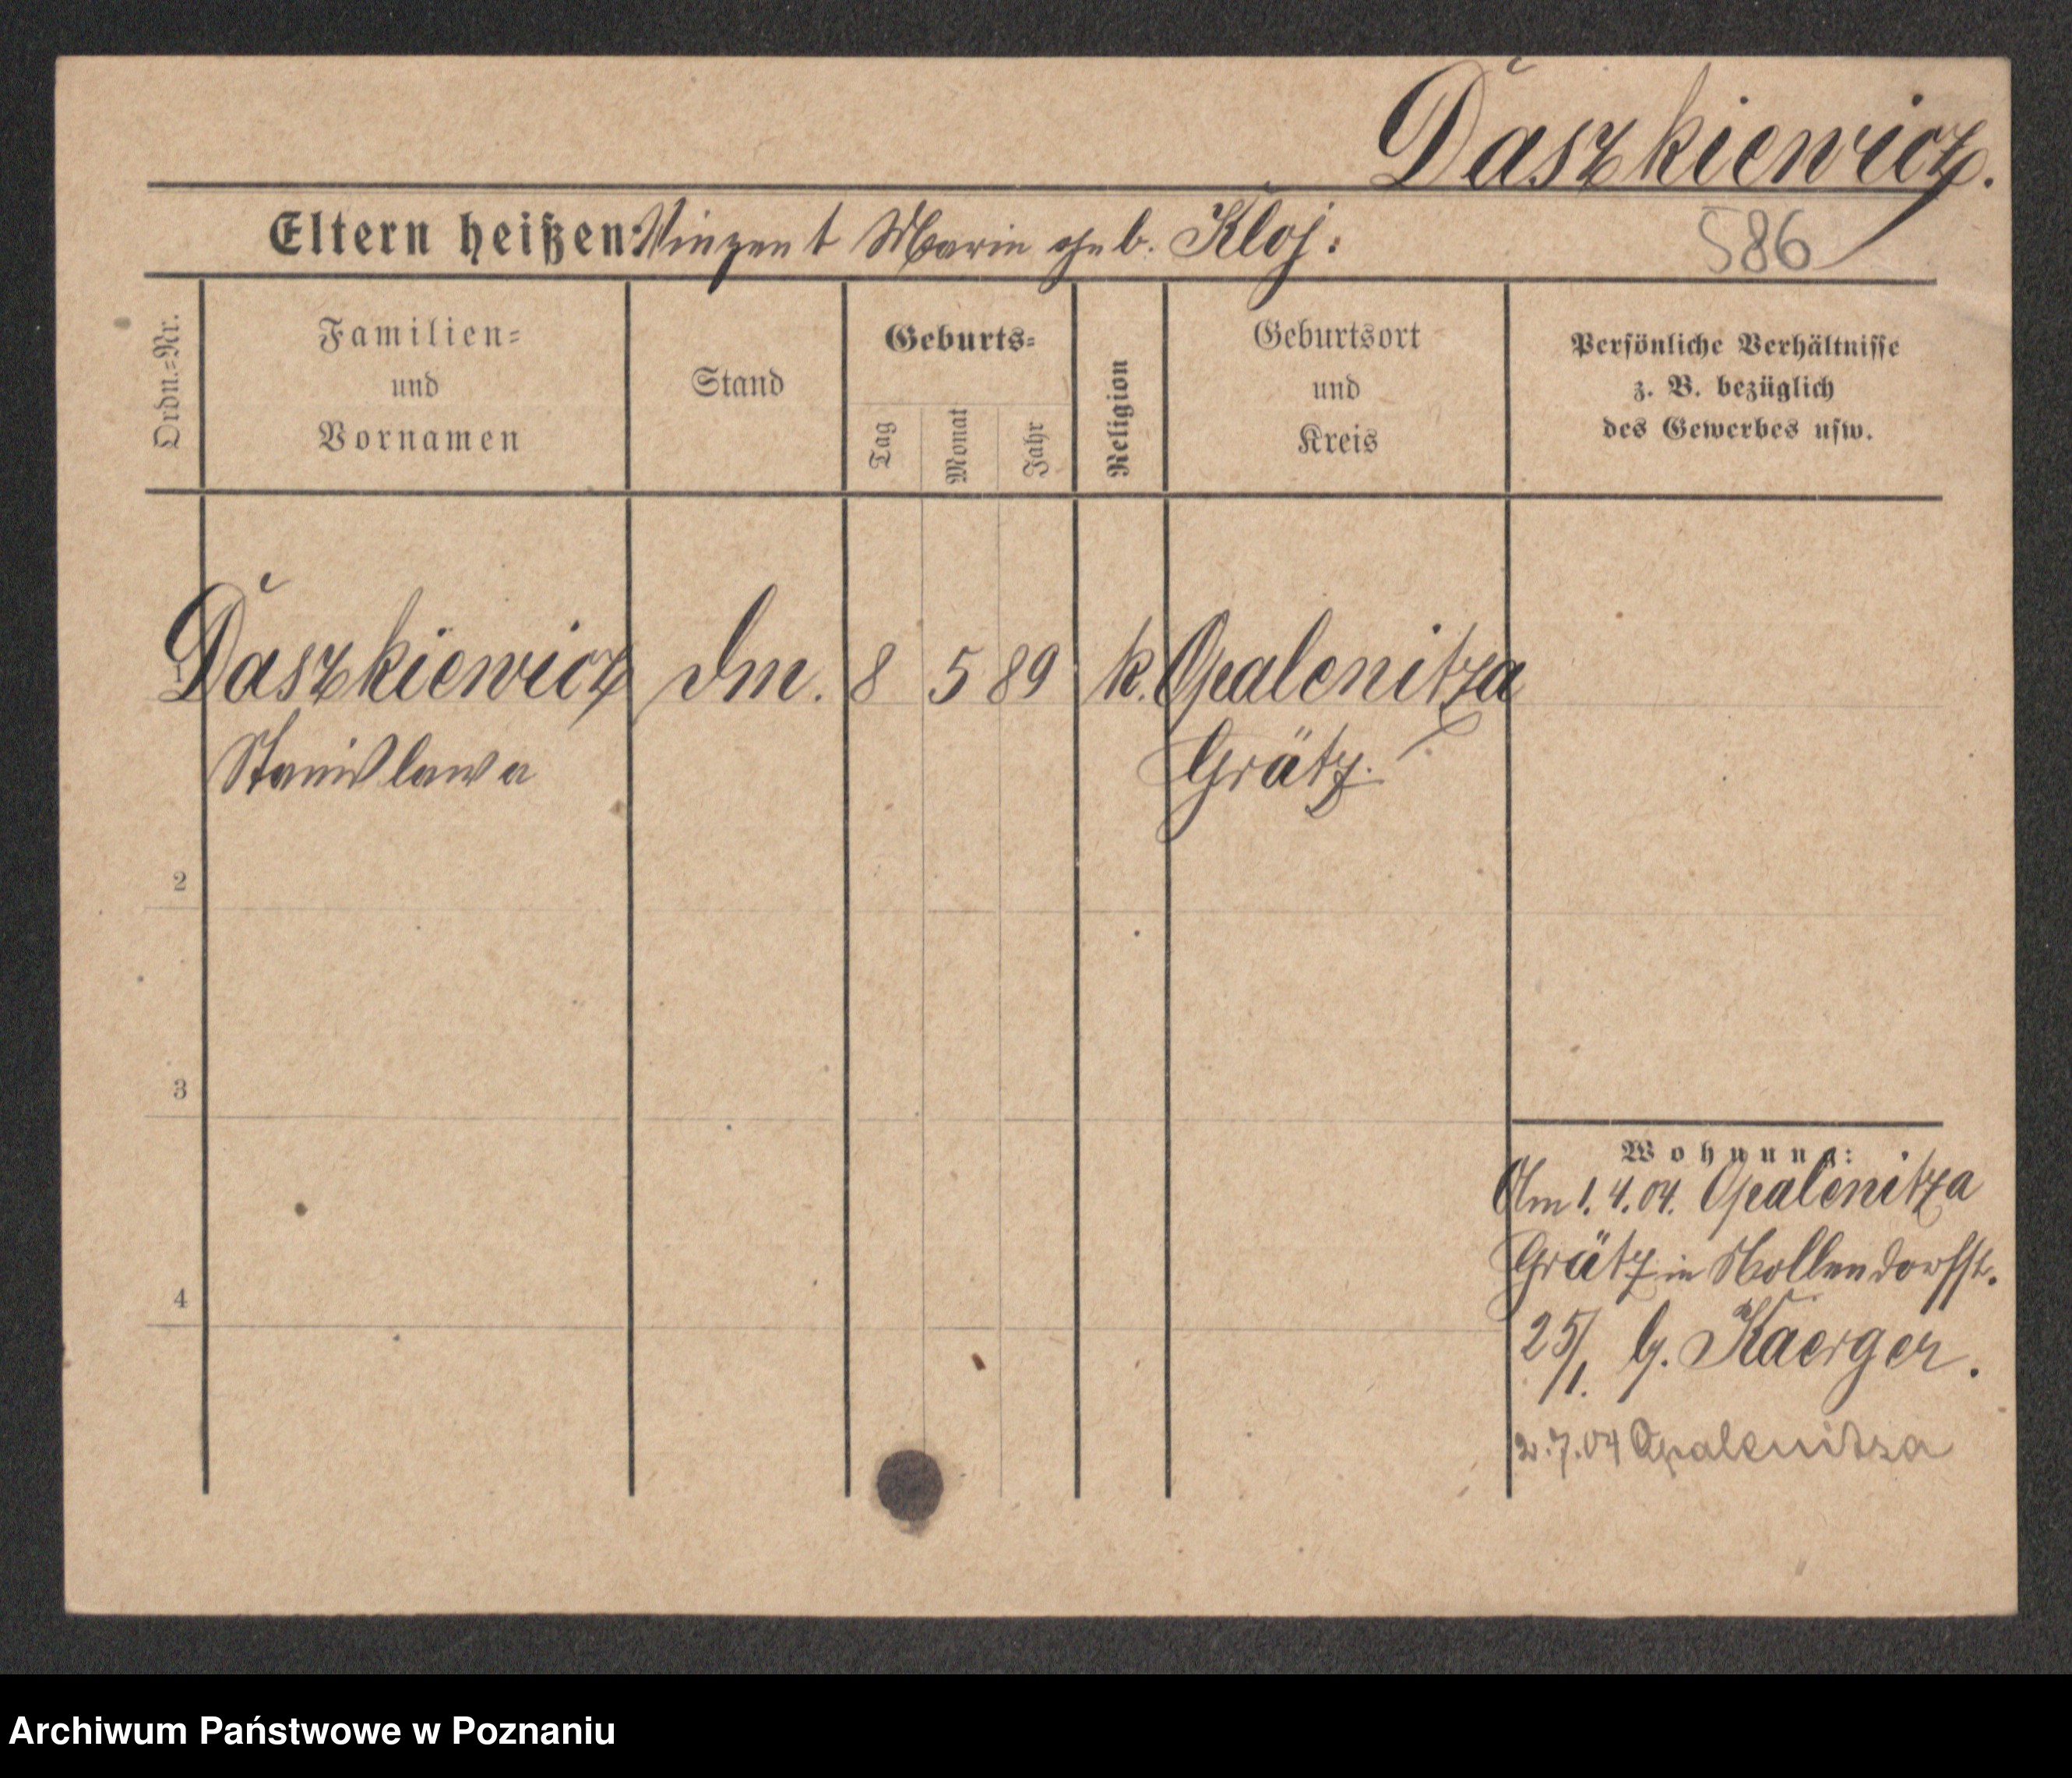 Daszkiewicz.
Eltern heißen: Vinzent Marie geb. Kloj:
586
Ordn.-Nr.
Familien-
und
Vornamen
Stand
Geburts-
Tag
Monat
Jahr
Religion
Geburtsort
und
Kreis
Persönliche Verhältnisse
z. B. bezüglich
des Gewerbes usw.
Daszkiewicz 8 5 89 k. Opalenitza
Stanislawa Grätz.
2
3
4
Wohnung:
Am 1.4.04. Opalenitza
Grätz in Nollendorfstr.
25/1. b. Kaerger.
2.7.04 Opalenitza
Archiwum Państwowe w Poznaniu